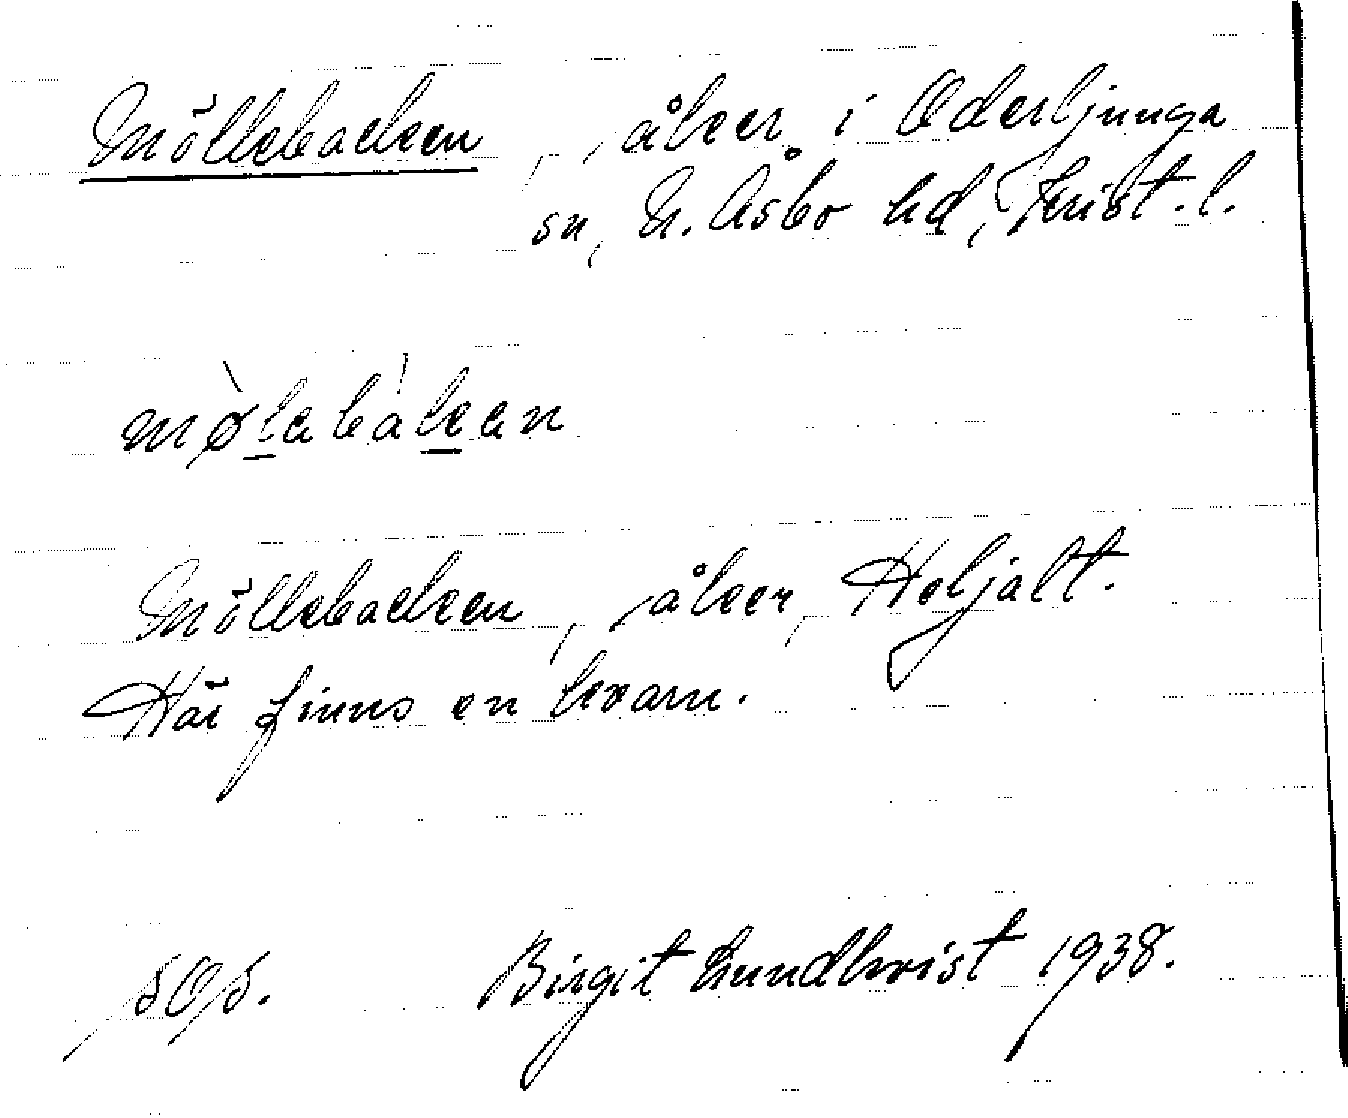 Möllebacken, åker i Oderljunga
sn, N. Åsbo hd, Krist. l.
mø̀lebáken
Möllebacken, åker, Holjalt.
Här finns en kvarn.
Birgit Lundkvist 1938.